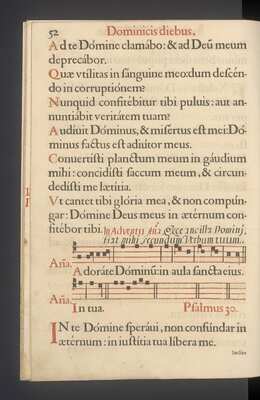 52 Dominicis diebus.
Ad te Dómine clamábo: & ad Deū meum
deprecábor.
Quæ vtilitas in sanguine meo: dum descén-
do in corruptiónem?
Nunquid confitébitur tibi puluis: aut an-
nuntiábit veritátem tuam?
Audiuit Dóminus, & misertus est mei: Dó-
minus factus est adiútor meus.
Conuertisti planctum meum in gáudium
mihi: concidisti saccum meum, & circun-
dedisti me lætítia.
Vt cantet tibi glória mea, & non compún-
gar: Dómine Deus meus in ætérnum con-
fitébor tibi. In Adventu Aña. Ecce ancilla Domini,
fiat mihi secundum Verbum tuum.
Aña. Adoráte Dóminū in aula sancta eius.
Aña. In tua. Psalmus 30.
IN te Dómine speráui, non confúndar in
ætérnum: in iustítia tua líbera me.